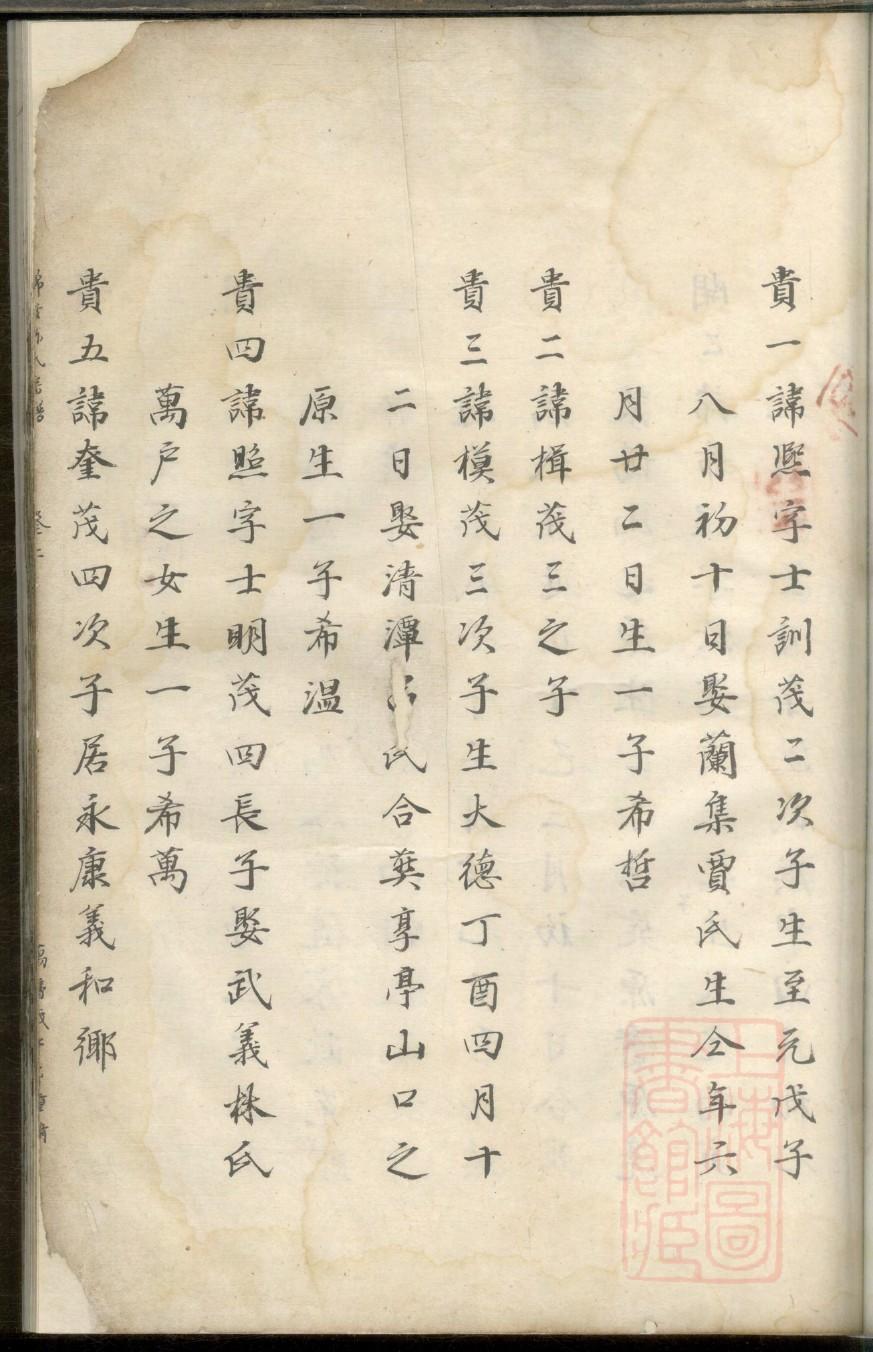 貴一諱熈字士訓茂二次子生至元戊子
八月初十日娶蘭集賈氏生仝年六
月廿二日生一子希哲
貴二諱楫茂三之子
貴三諱模茂三次子生大德丁酉四月十
二日娶清潭 氏合葬享亭山口之
原生一子希温
貴四諱照字士明茂四長子娶武義林氏
萬户之女生一子希萬
貴五諱奎茂四次子居永康義和鄉
上海圖
書館藏